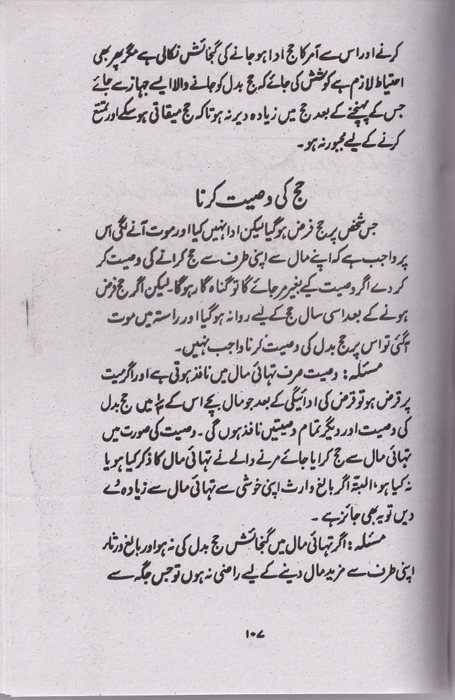 کرنے اور اس سے آمر کا حج ادا ہو جانے کی گنجائش نکالی ہے مگر پھر بھی
احتیاط لازم ہے کوشش کی جائے کہ حج بدل کو جانے والا ایسے جہاز سے جائے
جس کے پہنچنے کے بعد حج میں زیادہ دیر نہ ہو تاکہ حج میقاتی ہو سکے اور تمتع
کرنے کے لیے مجبور نہ ہو۔
حج کی وصیت کرنا
جس شخص پر حج فرض ہو گیا لیکن ادا نہیں کیا اور موت آنے لگی اس
پر واجب ہے کہ اپنے مال سے اپنی طرف سے حج کرانے کی وصیت کر
کر دے اگر وصیت کیے بغیر مر جائے گا تو گناہ گار ہوگا۔ لیکن اگر حج فرض
ہونے کے بعد اسی سال حج کے لیے روانہ ہو گیا اور راستہ میں موت
آ گئی تو اس پر حج بدل کی وصیت کرنا واجب نہیں۔
مسئلہ: وصیت صرف تہائی مال میں نافذ ہوتی ہے اور اگر میت
پر قرض ہو تو قرض کی ادائیگی کے بعد جو مال بچے اس کے ۱/۳ میں حج بدل
کی وصیت اور دیگر تمام وصیتیں نافذ ہوں گی۔ وصیت کی صورت میں
تہائی مال سے حج کرایا جائے مرنے والے نے تہائی مال کا ذکر کیا ہو یا
نہ کیا ہو، البتہ اگر بالغ وارث اپنی خوشی سے تہائی مال سے زیادہ دے
دیں تو یہ بھی جائز ہے۔
مسئلہ: اگر تہائی مال میں گنجائش حج بدل کی نہ ہو اور بالغ ورثاء
اپنی طرف سے مزید مال دینے کے لیے راضی نہ ہوں تو جس جگہ سے
۱۰۷